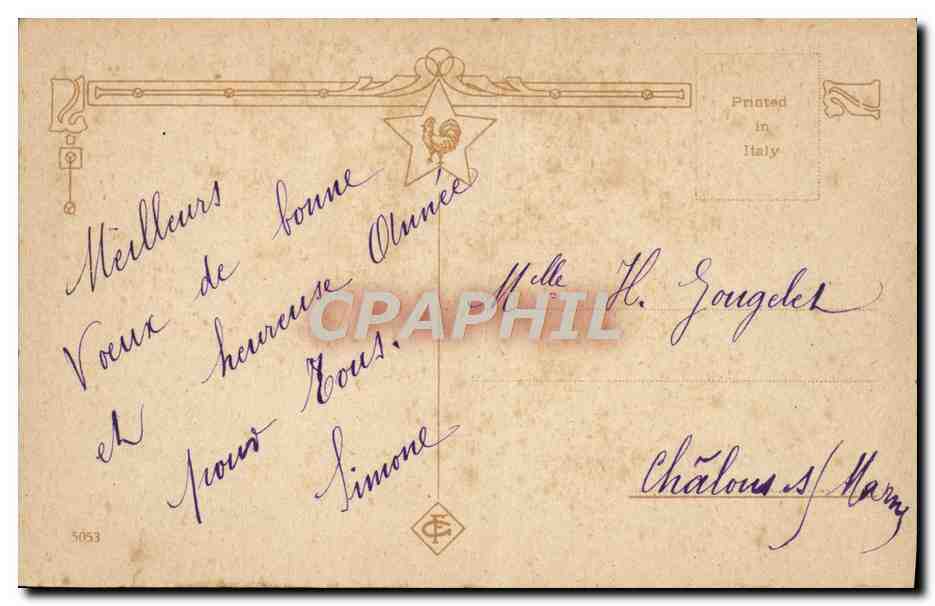 Printed
in
Italy
Meilleurs
Voeux de bonne
et heureuse Année
pour Tous.
Simone
Mlle H. Gougelet
Châlons s/ Marne
CPAPHIL
5053